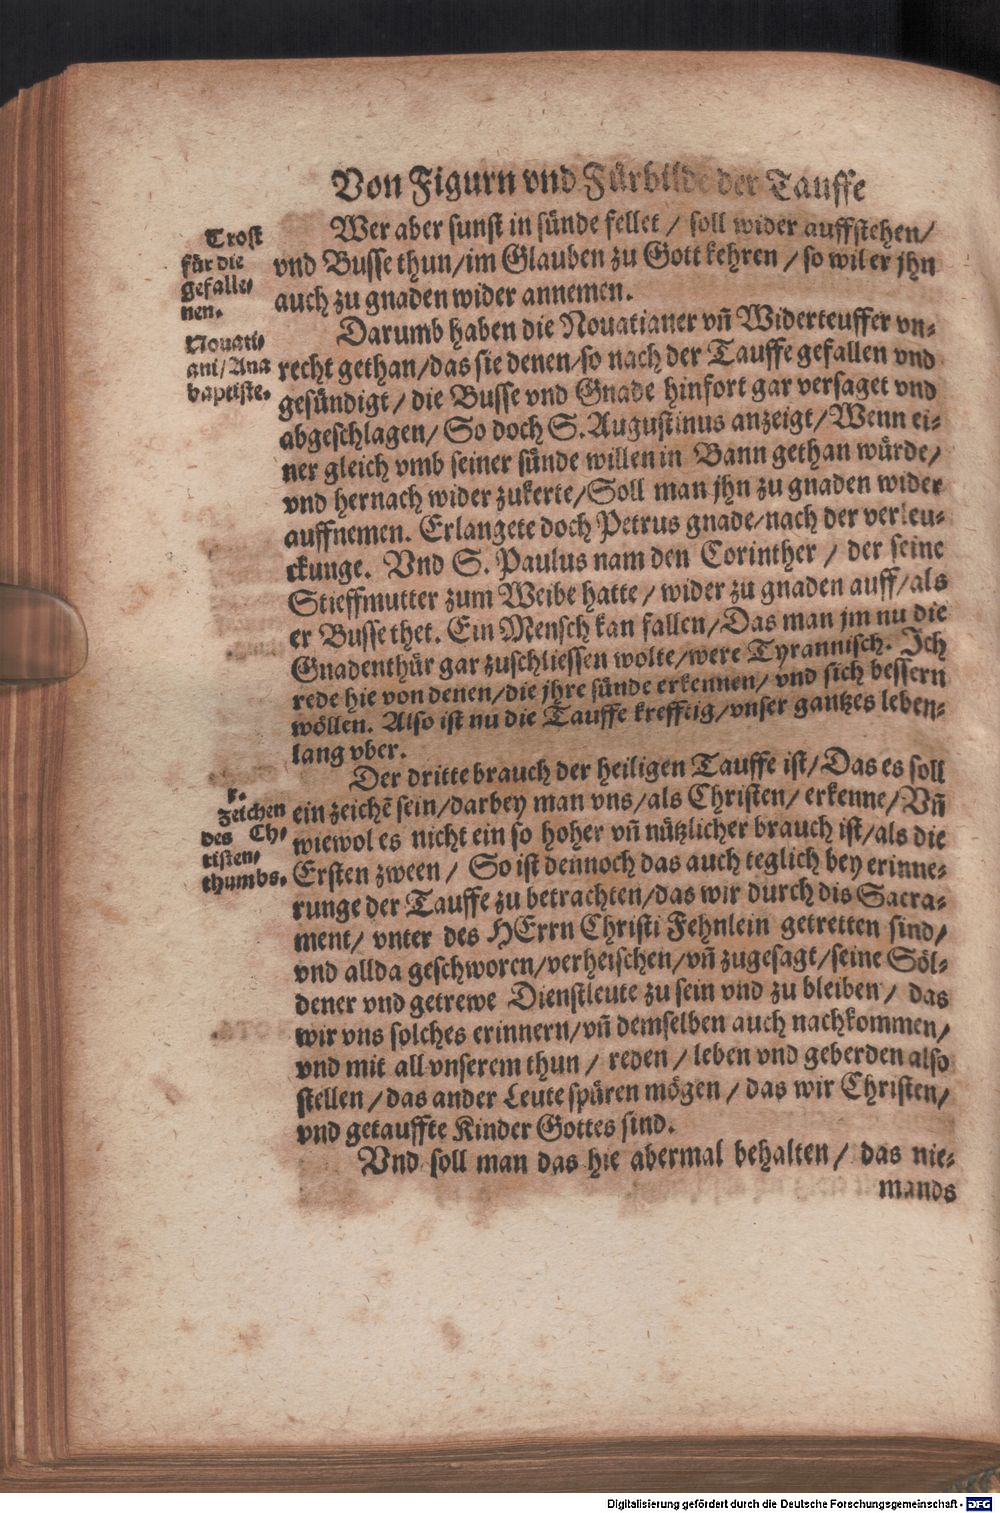 Von Figurn vnd Fürbilde der Tauffe
Trost
für die
gefalle/
nen.
Nouati/
ani/Ana
baptiste.
Wer aber sunst in sünde fellet / soll wider auffstehen/
vnd Busse thun/im Glauben zu Gott kehren / so wil er jhn
auch zu gnaden wider annemen.
Darumb haben die Nouatianer vñ Widerteuffer vn-
recht gethan/das sie denen/so nach der Tauffe gefallen vnd
gesündigt/ die Busse vnd Gnade hinfort gar versaget vnd
abgeschlagen/ So doch S. Augustinus anzeigt/Wenn ei-
ner gleich vmb seiner sünde willen in Bann gethan würde/
vnd hernach wider zukerte/Soll man jhn zu gnaden wider
auffnemen. Erlangete doch Petrus gnade/nach der verleu-
ckunge. Vnd S. Paulus nam den Corinther / der seine
Stieffmutter zum Weibe hatte / wider zu gnaden auff/als
er Busse thet. Ein Mensch kan fallen/Das man jm nu die
Gnadenthür gar zuschliessen wolte/were Tyrannisch. Ich
rede hie von denen/die jhre sünde erkennen/ vnd sich bessern
wöllen. Also ist nu die Tauffe krefftig/vnser gantzes leben-
lang vber.
Zeichen
des Ch/
risten/
thumbs.
Der dritte brauch der heiligen Tauffe ist/Das es soll
ein zeichē sein/darbey man vns/als Christen/ erkenne/Vñ
wiewol es nicht ein so hoher vñ nützlicher brauch ist/als die
Ersten zween / So ist dennoch das auch teglich bey erinne-
runge der Tauffe zu betrachten/das wir durch dis Sacra-
ment/ vnter des HErrn Christi Fehnlein getretten sind/
vnd allda geschworen/verheischen/vñ zugesagt/seine Söl-
dener vnd getrewe Dienstleute zu sein vnd zu bleiben / das
wir vns solches erinnern/vñ demselben auch nachkommen/
vnd mit all vnserem thun / reden / leben vnd geberden also
stellen / das ander Leute spüren mögen / das wir Christen/
vnd getauffte Kinder Gottes sind.
Vnd soll man das hie abermal behalten / das nie-
mands
Digitalisierung gefördert durch die Deutsche Forschungsgemeinschaft - DFG